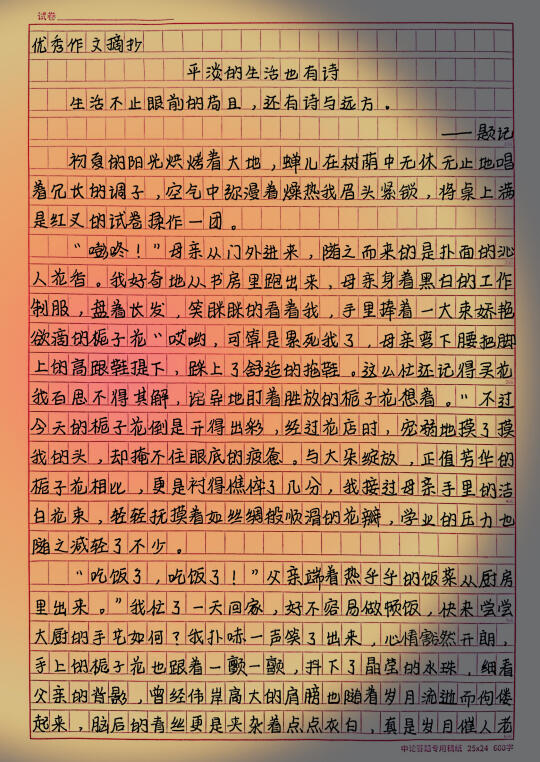 试卷
优秀作文摘抄
平淡的生活也有诗
生活不止眼前的苟且，还有诗与远方。
——题记
初夏的阳光烘烤着大地，蝉儿在树荫中无休无止地唱
着冗长的调子，空气中弥漫着燥热我眉头紧锁，将桌上满
是红叉的试卷揉作一团。
“嘭咚！”母亲从门外进来，随之而来的是扑面的沁
人花香。我好奇地从书房里跑出来，母亲身着黑白的工作
制服，盘着长发，笑眯眯的看着我，手里捧着一大束娇艳
欲滴的栀子花“哎哟，可算是累死我了，母亲弯下腰把脚
上的高跟鞋提下，踩上了舒适的拖鞋。这么忙还记得买花
我百思不得其解，诧异地盯着胜放的栀子花想着。“不过
今天的栀子花倒是开得出彩，经过花店时，宠溺地摸了摸
我的头，却掩不住眼底的疲惫。与大朵绽放，正值芳华的
栀子花相比，更是衬得憔悴了几分，我接过母亲手里的洁
白花束，轻轻抚摸着如丝绸般顺滑的花瓣，学业的压力也
随之减轻了不少。
“吃饭了，吃饭了！”父亲端着热乎乎的饭菜从厨房
里出来。”我忙了一天回家，好不容易做顿饭，快来尝尝
大厨的手艺如何？我扑哧一声笑了出来，心情豁然开朗，
手上的栀子花也跟着一颤一颤，抖下了晶莹的水珠，细看
父亲的背影，曾经伟岸高大的肩膀也随着岁月流逝而佝偻
起来，脑后的青丝更是夹杂着点点灰白，真是岁月催人老
中论答题专用稿纸 25x24 600字